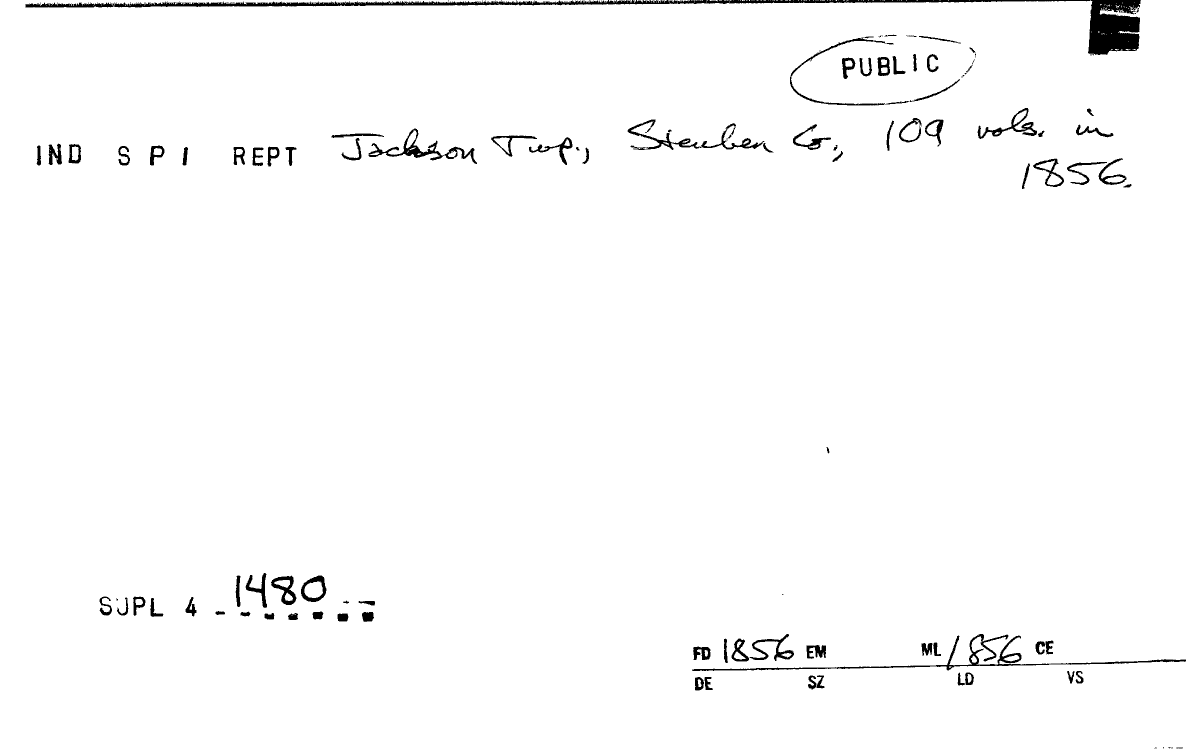 PUBLIC
IND S P I REPT Jackson Twp., Steuben Co., 109 vols. in
1856.
SUPL 4 - 1480
FD 1856 EM ML 1856 CE
DE SZ LD VS